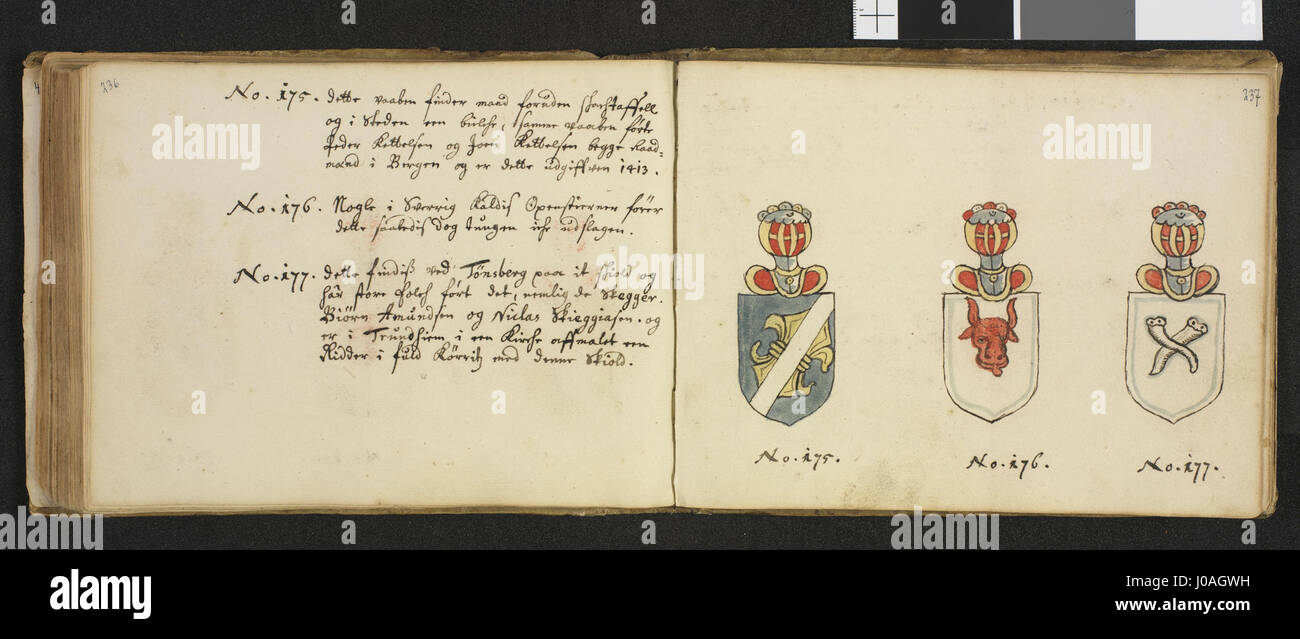 236
No. 175. dette vaaben finder mand foruden
og i Steden een samme vaaben förte
Peder Kettelsen og Joen Kettelsen begge Raad=
mænd i Bergen og er dette udgiffven 1413.
No. 176. Nogle i Sverrig Kaldis förer
dette saaledis dog tungen udslagen.
No. 177. dette findis ved Tønsberg paa it skiold og
har store folch fört det, nemlig de Skegger.
Biörn Amundsen og Niclas Skieggiasen. og
er i Trundhiem i een Kirche affmalet een
Ridder i fuld Körritz med denne Skiold.
237
No. 175.
No. 176.
No. 177.
alamy
Image ID: J0AGWH
www.alamy.com